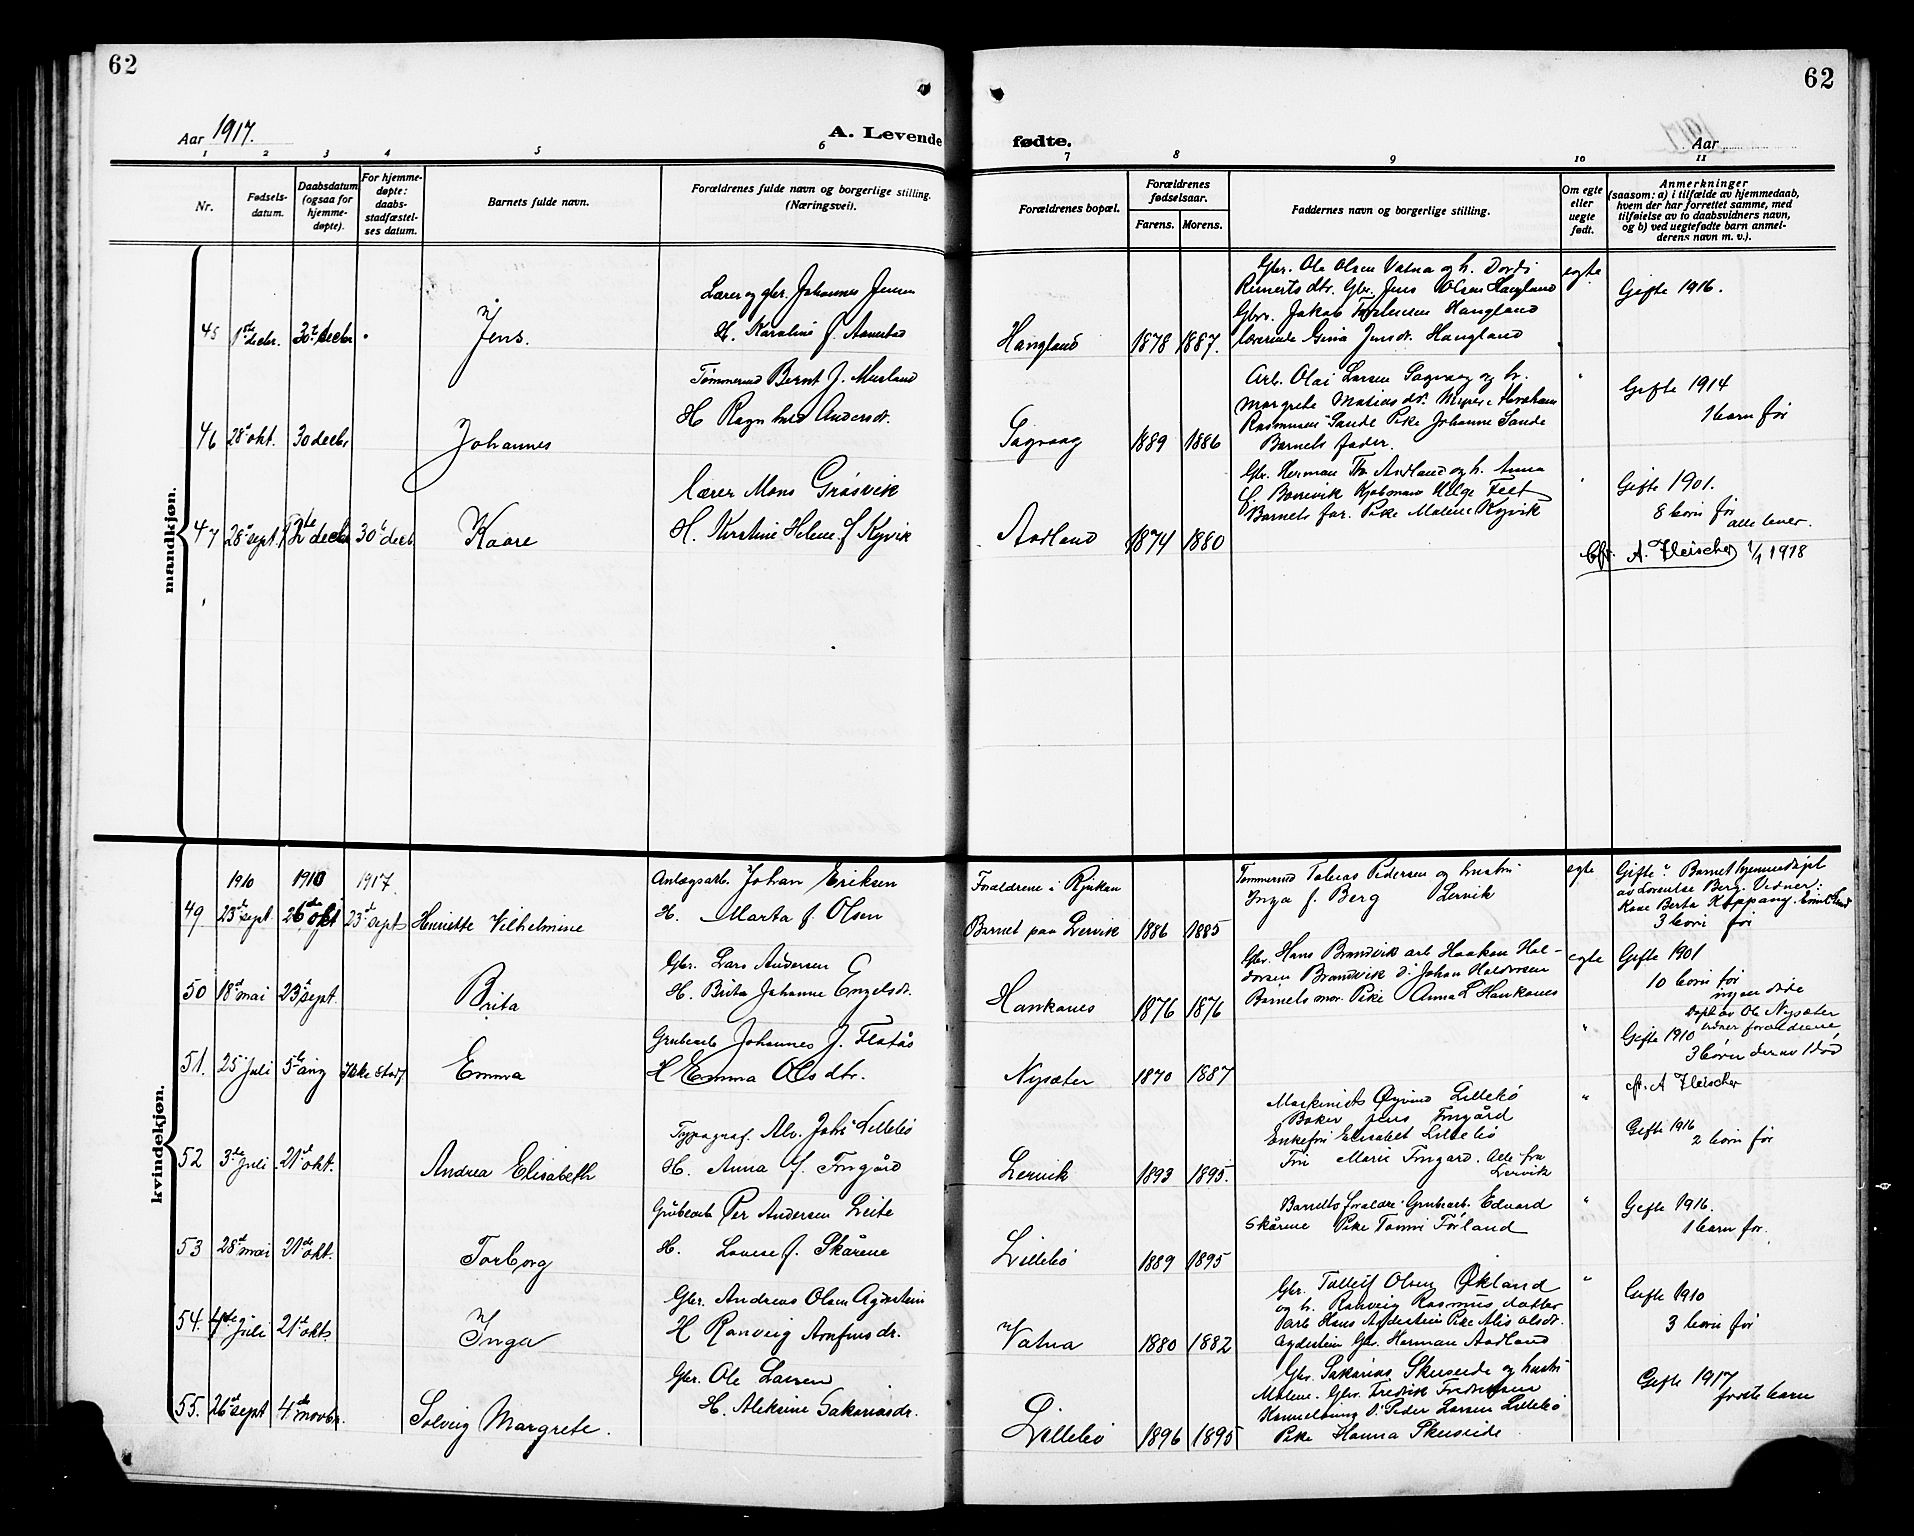 62
62
Aar 1917.
A. Levende
fødte.
Aar
1 2 3 4 5 6
7 8 9 10 11
Nr.
Fødsels-
datum.
Daabsdatum
(ogsaa for
hjemme-
døpte).
For hjemme-
døpte:
daabs-
stadfæstel-
ses datum.
Barnets fulde navn.
Forældrenes fulde navn og borgerlige stilling.
(Næringsvei).
Forældrenes bopæl.
Forældrenes
fødselsaar.
Farens. Morens.
Faddernes navn og borgerlige stilling.
Om egte
eller
uegte
født.
Anmerkninger
(saasom: a) i tilfælde av hjemmedaab,
hvem der har forrettet samme, med
tilføielse av to daabsvidners navn,
og b) ved uegtefødte barn anmel-
derens navn m. v.).
mandkjøn.
Lærer og gbr. Johannes Jensen
45 1ste decbr. 30te decbr Jens. H. Karoline f. Aamstad
Hangland 1878 1887.
Gbr. Ole Olsen Vatna og h. Dordi
Reinertsdtr. Gbr. Jens Olsen Hangland
Gbr. Jakob Hangland
lærerinde Gina Jensdt. Hangland
egte
Gifte 1916.
Tømmermd Bernt J. Musland
46 28de okt. 30 decbr Johannes H Ragnhild Andersdt.
Sagvaag 1889 1886
Arb. Olai Larsen Sagvaag og h.
Margrete Matiasdt. Abraham
Rasmussen Sande Pike Johanne Sande
Barnets fader.
"
Gifte 1914
1 barn før
lærer Mons Grasvik
47 28de sept. 12te decbr 30te decb. Kaare H. Kirstine Helene f Kyvik
Aadland 1874 1880
Gbr. Herman Th Aadland og h. Anna
Kjøbmand Helge Feet
Barnets far. Pike Malene Kyvik
"
Gifte 1901.
8 børn før
alle lever.
Cfr. A. Fleischer 1/1 1918
kvindekjøn.
1910 1910 1917.
Anlægsarb. Johan Eriksen
49 23de sept. 26de okt 23de sept Henriette Vilhelmine H. Marta f. Olsen
Forældrene i Rjukan
Barnet paa Lervik 1886 1885
Tømmermd Tobias Pedersen og hustru
Inga f. Berg Lervik
egte
Gifte: Barnet hjemmedøpt
av Lorentse Berg. Vidner:
Kone Berta Koppang.
3 børn før
Gbr. Lars Andersen
50 18de mai 23de sept. Brita H. Brita Johanne Engelsdt.
Hankanes 1876 1876
Gbr. Hans Brandvik arb Haakon Hal-
dorsen Brandvik d: Johan Haldorsen
Barnets mor. Pike Anna L Hankanes
egte
Gifte 1901
10 børn før
ingen døde
Grubearb Johannes J. Flatås
51. 25 Juli 5te aug Ikke stadf Emma H Emma Olsdtr.
Nysæter 1870 1887
"
Døpt av Ole Nysæter
vidner forældrene
Gifte 1910
3 børn derav 1 død
cfr. A Fleischer
Typograf. Alv. Johs Lillebø
52 3die Juli 21de okt. Andrea Elisabeth H. Anna f. Tungård
Lervik 1893 1895.
Maskinist Øyvind Lillebø
Baker Jens Tungård
Enkefru Elisabet Lillebø
Frk Marie Tungard. Alle fra
Lervik
"
Gifte 1916
2 børn før
Grubearb Per Andersen Leite
53 28de mai 21de okt. Torborg H. Lovise f. Skårene
Lillebø 1889 1895
Barnets forældre. Grubearb. Edvard
Skårene Pike Tomine Førland
"
Gifte 1916.
1 barn før.
Gbr. Andreas Olsen Agdestein
54. 4de Juli 21de okt. Inga H Ranveig Arnfinsdr.
Vatna 1880 1882
Gbr. Tolleif Olsen Økland
og h. Ranveig Rasmusdatter
arb Hans Agdestein Pike Alis Olsdt.
Agdestein Gbr. Herman Aadland
"
Gifte 1910
3 børn før
Gbr. Ole Larsen
55. 26de sept 4de novbr. Solveig Margrete. H. Aleksine Sakariasdr.
Lillebø 1896 1895
Gbr. Sakarias Skurseide og hustr.
Malene. Gbr. Fredrik Fredriksen
Peder Larsen Lillebø
Pike Hanna Skurseide
Gifte 1917
første barn